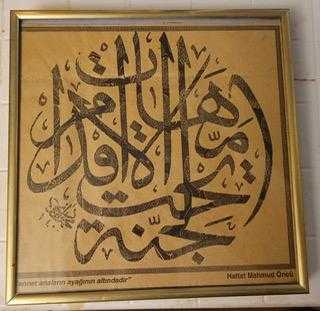 الجنة تحت اقدام الامهات
ennet anaların ayağının altındadır"
Hattat Mahmud Öncü